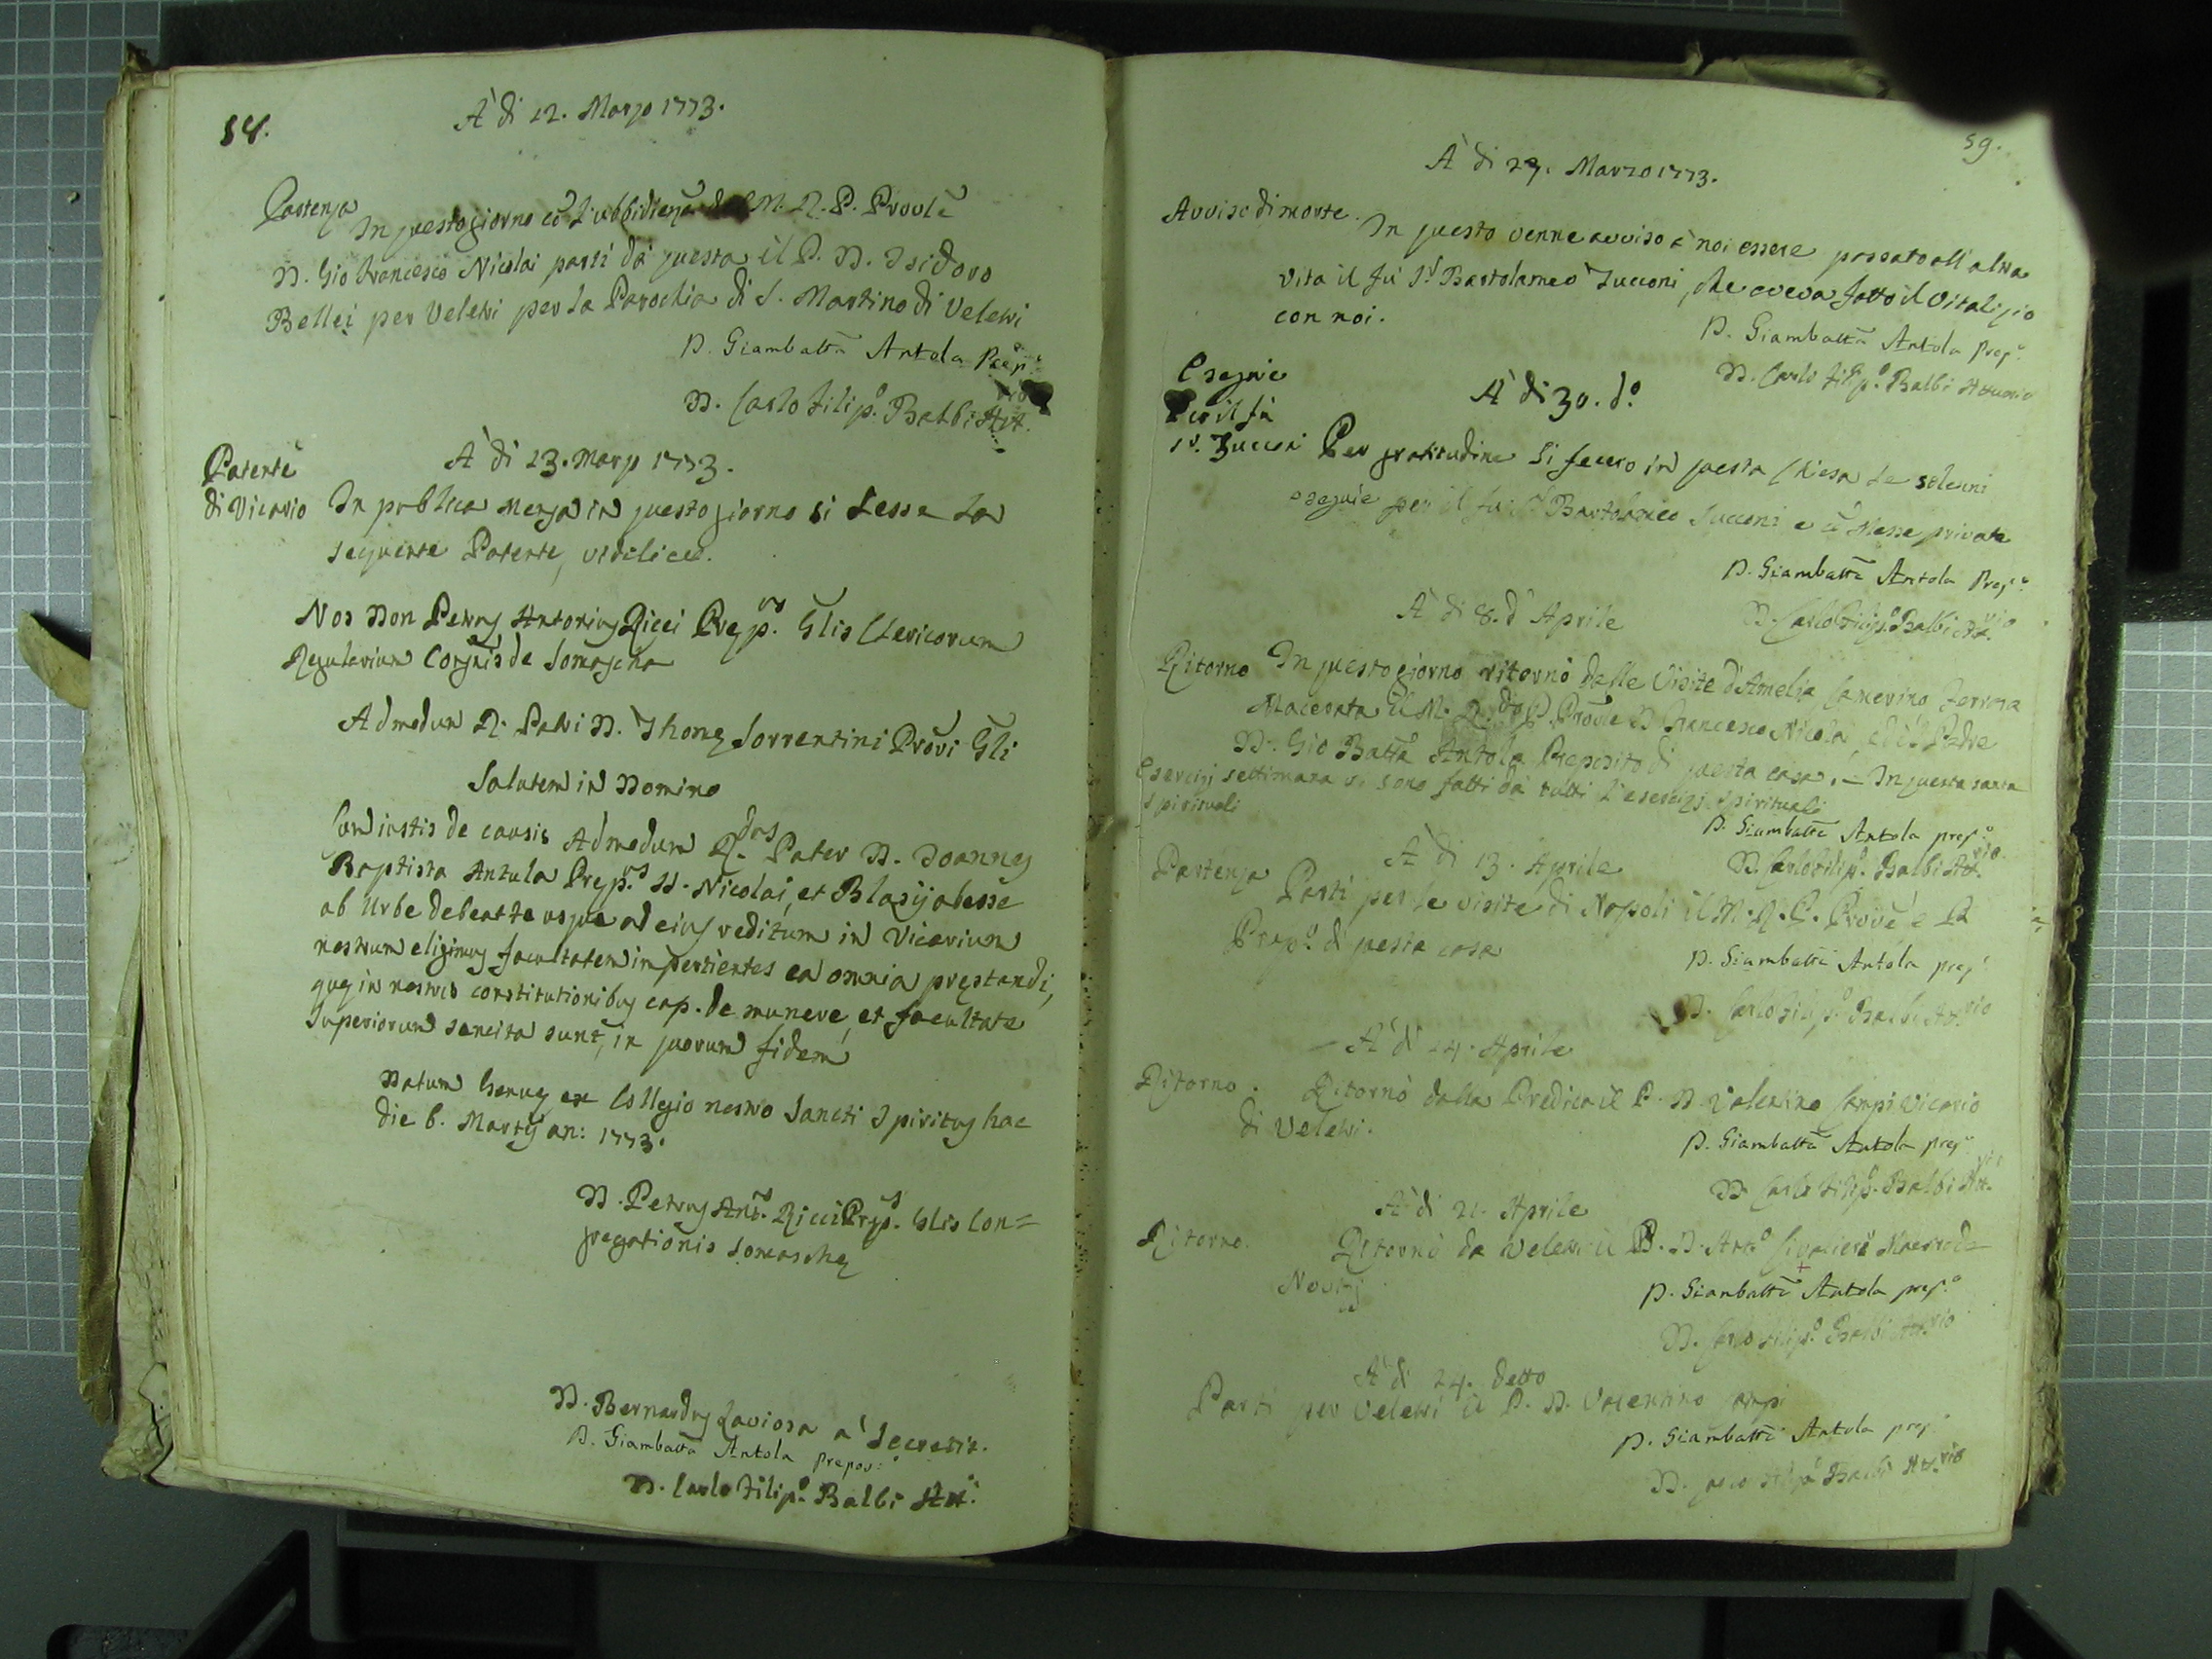 58.
A' di 12. Marzo 1773.
Partenza
In questo giorno cõ l'ubbidienza del M. R. P. Provle
D. Gio Francesco Nicolai partì da questa il P. D. Isidoro
Bellei per Veletri per la Parochia di S. Martino di Veletri
D. Giambatta Antola Prepo
D. Carlo Filipo. Balbi Attrio
A' di 13. Marzo 1773.
Patente
di Vicario
In publica mensa in questo giorno si lesse la
seguente Patente, videlicet.
Nos Don Petrus Antonius Ricci Prepus. Glis Clericorum
Regularium Congnis de Somascha
Admodum R. Patri D. Thomę Sorrentini Provi Gli
Salutem in Domino
Cum iustis de causis Admodum R.dus Pater D. Joannes
Baptista Antula Prepus. SS. Nicolai, et Blasij abesse
ab Urbe debeat te usque ad eius reditum in Vicarium
nostrum eligimus facultatem impertientes ea omnia pręstandi,
quę in nostris constitutionibus cap. de munere, et facultate
Superiorum sancita sunt, in quorum fidem
Datum Genuę ex Collegio nostro Sancti Spiritus hac
die 6. Martij an: 1773.
D. Petrus Ant.us Ricci Prepus. Glis Con=
gregationis Somaschę
D. Bernardus Laviosa a' Secretis.
D. Giambatta Antola Prepos:o
D. Carlo Filipo. Balbi Att.o
59.
A' di 27. Marzo 1773.
Avviso di morte.
In questo venne avviso a' noi essere passato all'altra
vita il fu Sr. Bartolameo Zucconi, che aveva fatto il Vitalizio
con noi.
D. Giambatta Antola Prepo.
D. Carlo Filipo. Balbi Attuario
Esequie
Per il fù
Sr. Zucconi
A' di 30. do.
Per gratitudine si fecero in questa Chiesa le solenni
esequie per il fu Sr Bartolameo Zucconi e cõ Messe private
D. Giambatta Antola Prepo.
D. Carlo Filipo. Balbi Att.rio
A' di 8. d'Aprile
Ritorno
In questo giorno ritornò dalle Visite d'Amelia Camerino Ferrara
Macerata il M. R.do P. Provle D Francesco Nicolai, ed il Padre
D. Gio Batta Antola Preposito di questa casa. — In questa santa
Esercizj
settimana si sono fatti da tutti l'esercizj spirituali
Spirituali
D. Giambatta Antola prepo.
D. Carlo Filipo. Balbi Att.rio
A' di 13. Aprile
Partenza
Partì per le visite di Napoli il M. R. P. Provle e P
Prepo. di questa casa
D. Giambatta Antola prepo
D. Carlo Filipo. Balbi Att.rio
A' di 14. Aprile
Ritorno.
Ritornò dalla Predica il P. D Valentino Campi Vicario
di Veletri.
D. Giambatta Antola prepo
D. Carlo Filipo. Balbi Att.rio
A' di 21. Aprile
Ritorno.
Ritornò da Veletri il P. D. Anto. Civalieri Maestro de
Novizj
D. Giambatta Antola prepo.
D. Carlo Filipo. Balbi Att.rio
A' di 24. detto
Partì per Veletri il P. D. Valentino Campi
D. Giambatta Antola prepo
D. Carlo Filipo Balbi Att.rio